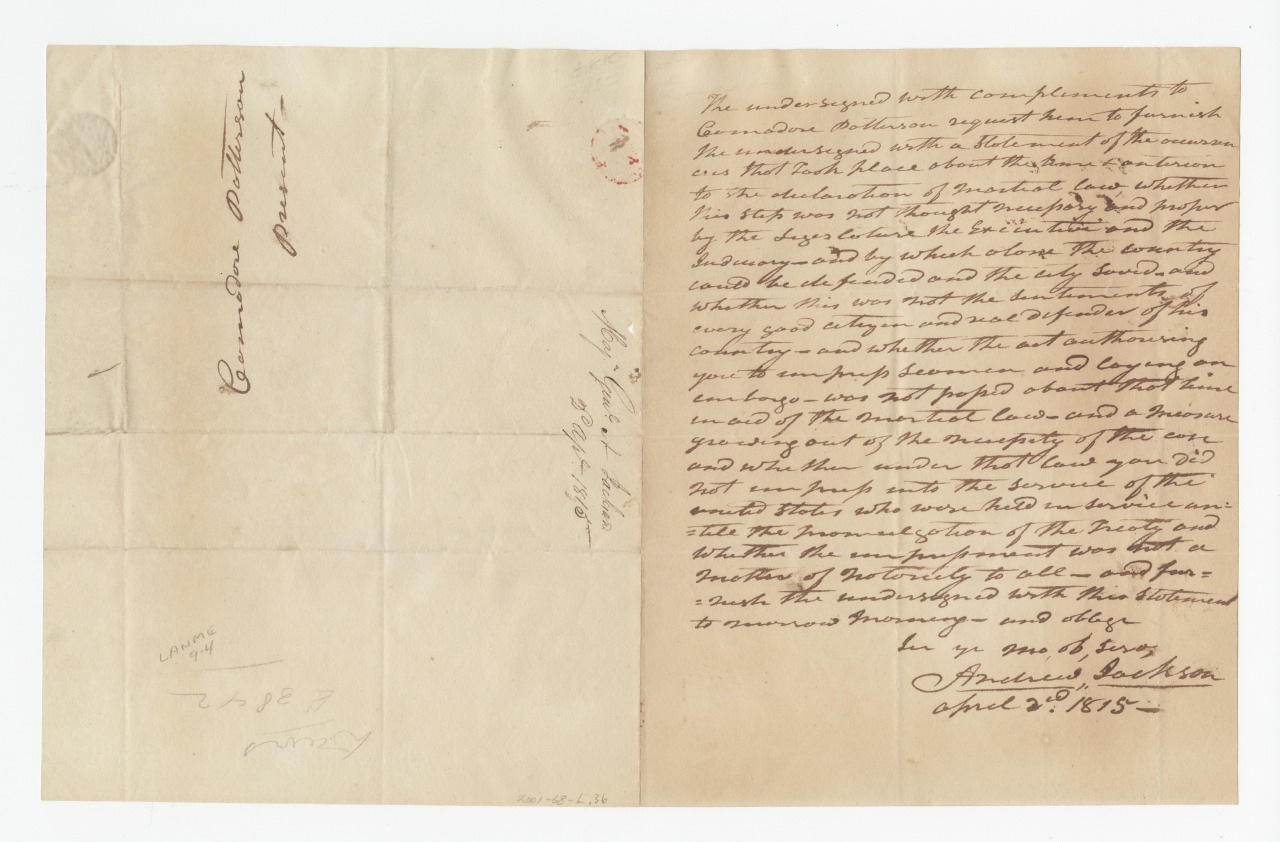 Comodore Patterson
Present—
Maj.r Gen.l A Jackson
2.d Ap.l 1815
LANME
9-4
E 3842
2001-68-L.36
The undersigned with complements to
Comodore Patterson request him to furnish
the undersigned with a Statement of the occurren
ces that Took place about the time & anterior
to the declaration of martial law, whether
this step was not thought necessary and proper
by the Legislature the Executive and the
Judiciary—and by which alone the country
could be defended and the city saved—and
whether this was not the sentiments of
every good citizen and real defender of his
country—and whether the act authorising
you to impress seamen and laying an
embargo—was not passed about that time
in aid of the martial law—and a measure
growing out of the necessity of the case
and whether under that law you did
not impress into the service of the
united States who were held in service un=
=till the promulgation of the Treaty and
whether the impressment was not a
matter of notoriety to all—and fur=
=nish the undersigned with this Statement
to morrow morning—and oblige
Sir yr mo, ob, serv,
Andrew Jackson
April 2nd. 1815—